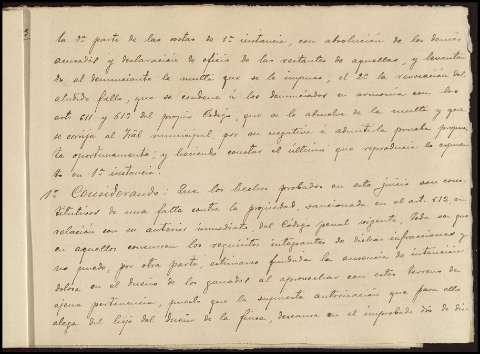 la 3ª parte de las costas de 1ª instancia, con absolución de los demás
acusados y declaración de oficio de las restantes de aquellas, y levantan
do al denunciante la multa que se le impuso, el 2º la revocación del
aludido fallo, que se condene á los denunciados en armonía con los
art. 611 y 613 del propio Código, que se le absuelva de la multa y que
se corrija al Fiscal municipal, por su negativa á admitirle prueba propues
ta oportunamente; y haciendo constar el último que reproducía lo expues
to en 1ª instancia.
1º Considerando: Que los hechos probados en este juicio son cons
titutivos de una falta contra la propiedad, sancionada en el art. 612, en
relación con su anterior inmediato, del Código penal vigente, toda vez que
en aquellos concurren los requisitos integrantes de dichas infracciones y
no puede, por otra parte, estimarse fundada la ausencia de intención
dolosa en el dueño de los ganados al aprovechar con estos terreno de
ajena pertenencia, puesto que la supuesta autorización que para ello
alega del hijo del dueño de la finca, descansa en el improbado dio de